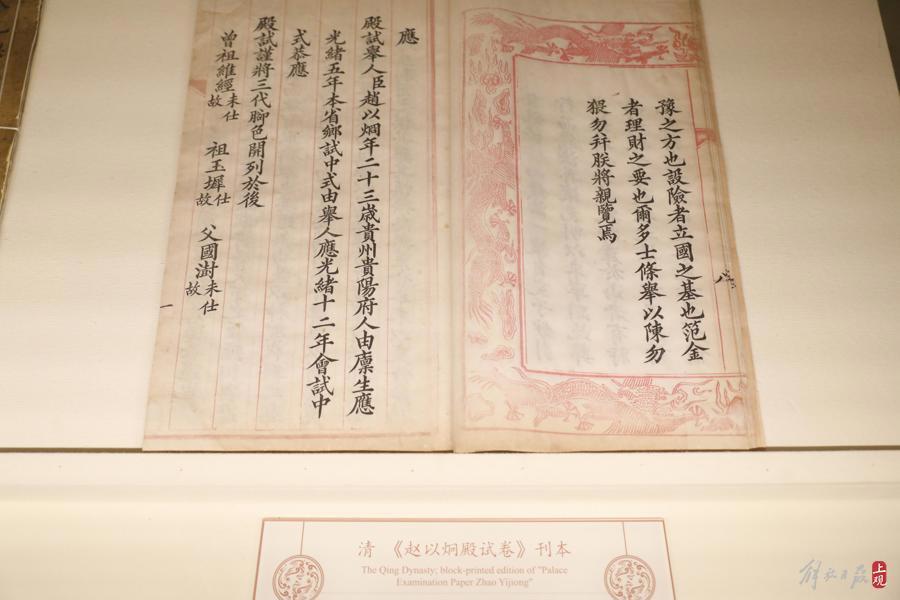 豫之方也設險者立國之基也笵金
者理財之要也爾多士條舉以陳勿
猥勿并朕將親覽焉
應
殿試舉人臣趙以烱年二十三歲貴州貴陽府人由廩生應
光緒五年本省鄉試中式由舉人應光緒十二年會試中
式恭應
殿試謹將三代腳色開列於後
曾祖維經未仕故 祖玉墀仕故 父國澍未仕故
一
清 《赵以炯殿试卷》刊本
The Qing Dynasty; block-printed edition of "Palace
Examination Paper Zhao Yijiong"
解放日报
上观